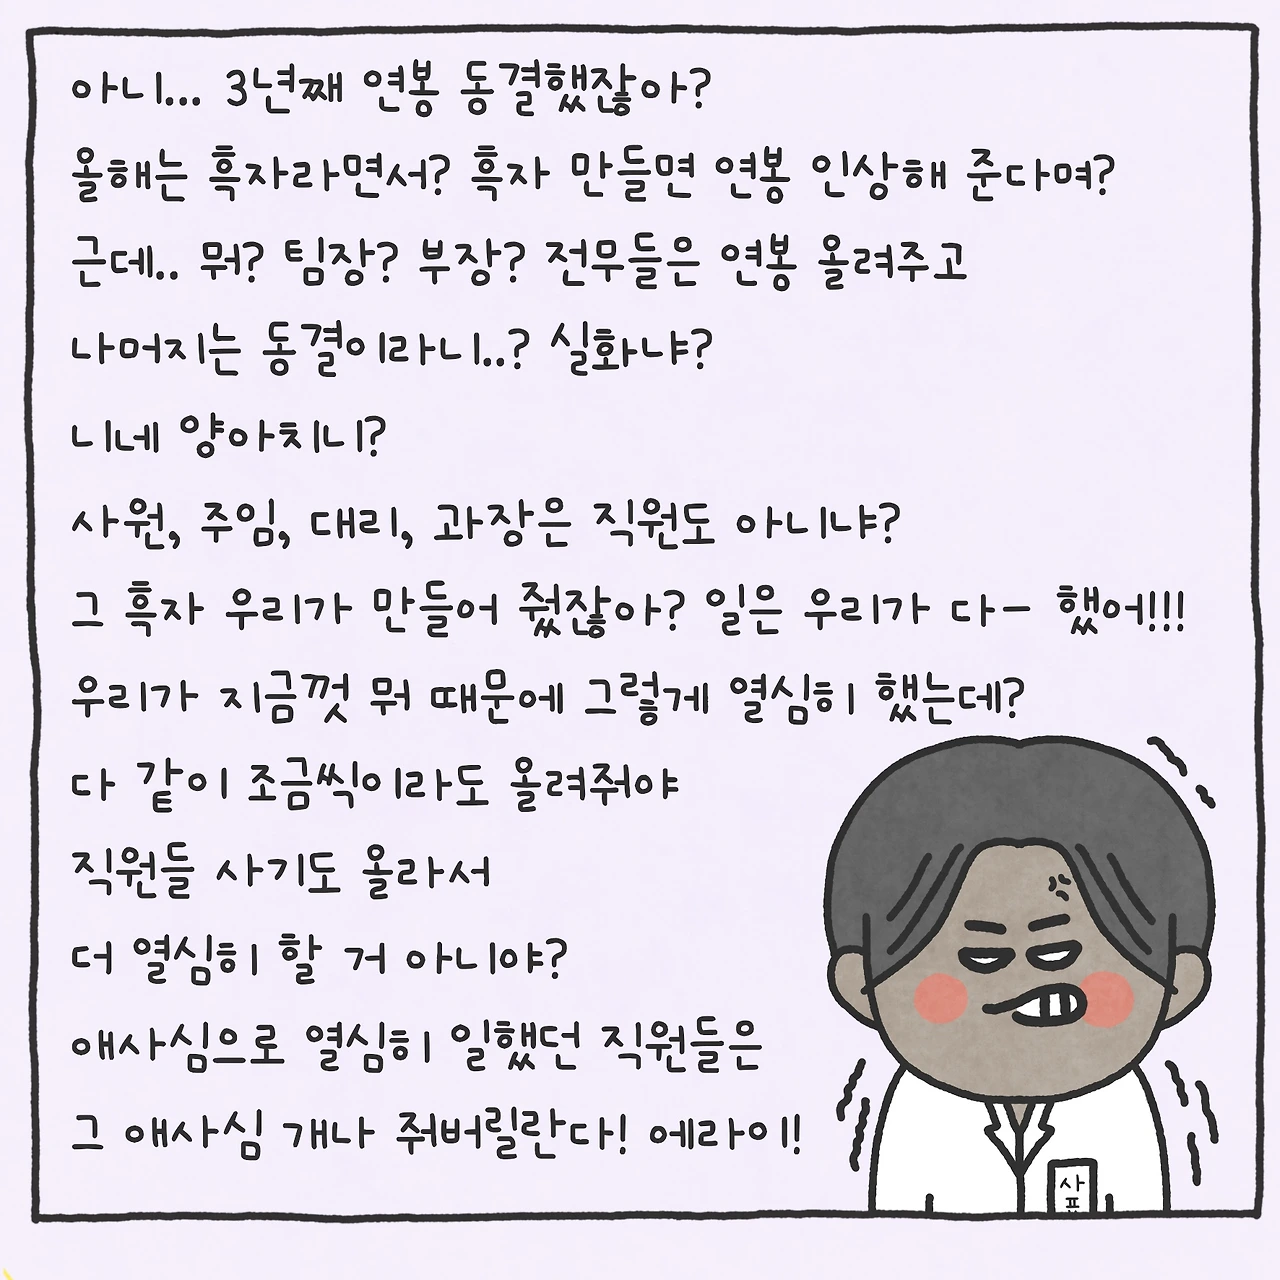 아니... 3년째 연봉 동결했잖아?
올해는 흑자라면서? 흑자 만들면 연봉 인상해 준다며?
근데.. 뭐? 팀장? 부장? 전무들은 연봉 올려주고
나머지는 동결이라니..? 실화냐?
니네 양아치니?
사원, 주임, 대리, 과장은 직원도 아니냐?
그 흑자 우리가 만들어 줬잖아? 일은 우리가 다- 했어!!!
우리가 지금껏 뭐 때문에 그렇게 열심히 했는데?
다 같이 조금씩이라도 올려줘야
직원들 사기도 올라서
더 열심히 할 거 아니야?
애사심으로 열심히 일했던 직원들은
그 애사심 개나 줘버릴란다! 에라이!
사
표